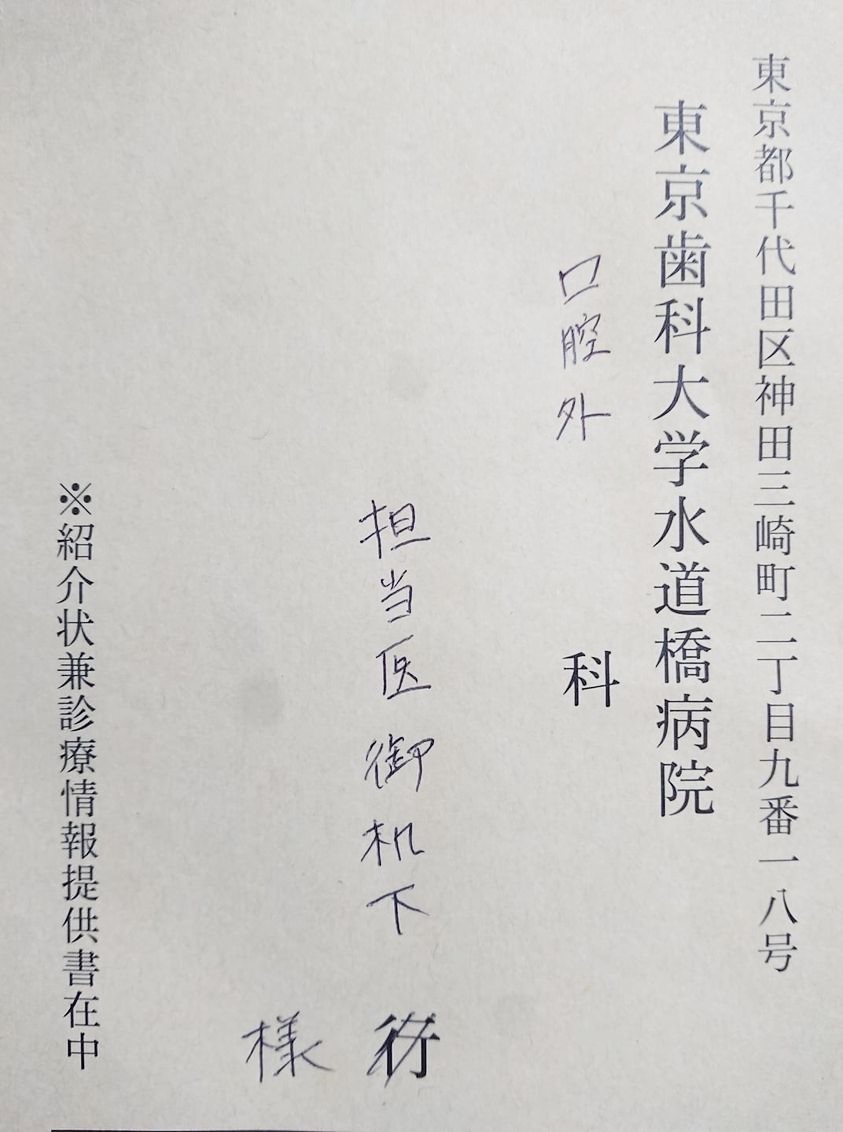 東京都千代田区神田三崎町二丁目九番一八号
東京歯科大学水道橋病院
口腔外 科
担当医御机下 行
様
※紹介状兼診療情報提供書在中